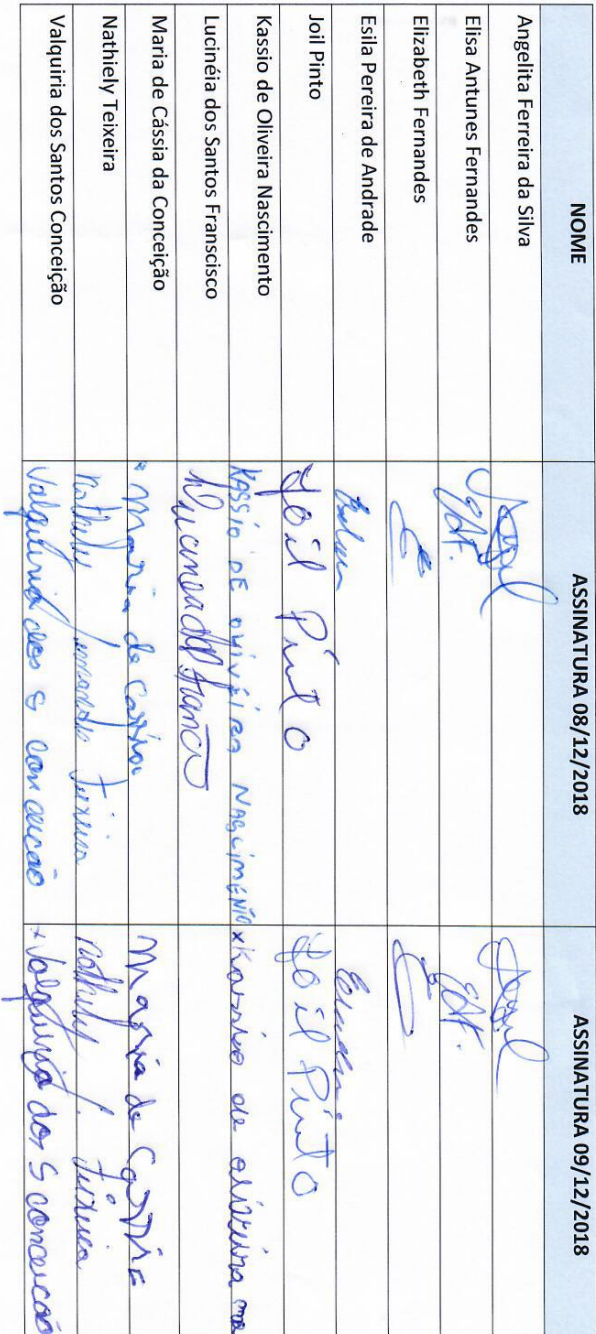 NOME ASSINATURA 08/12/2018 ASSINATURA 09/12/2018
Angelita Ferreira da Silva
Elisa Antunes Fernandes EAF. EAF.
Elizabeth Fernandes
Esila Pereira de Andrade
Joil Pinto Joil Pinto Joil Pinto
Kassio de Oliveira Nascimento KASSIO DE OLIVEIRA NASCIMENTO x Kassio de oliveira
Lucinéia dos Santos Franscisco
Maria de Cássia da Conceição Maria de Cassia Maria de Cassia
Nathiely Teixeira Nathiely Teixeira Nathiely Teixeira
Valquiria dos Santos Conceição Valquiria dos S conceição x Valquiria dos S conceicao